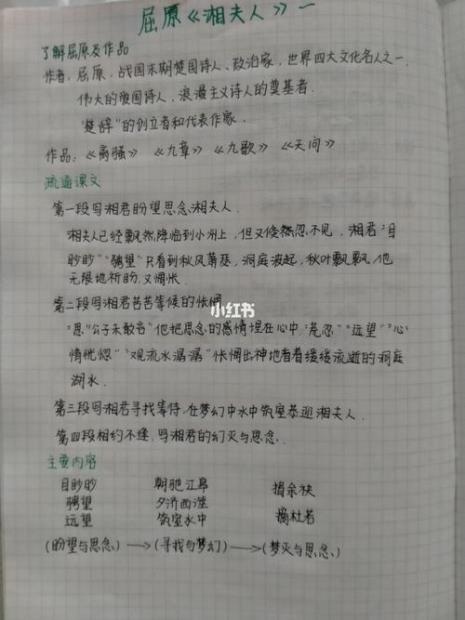 屈原《湘夫人》一
了解屈原及作品
作者：屈原，战国末期楚国诗人、政治家，世界四大文化名人之一
伟大的爱国诗人，浪漫主义诗人的奠基者.
"楚辞"的创立者和代表作家.
作品：《离骚》《九章》《九歌》《天问》
疏通课文
第一段写湘君盼望思念湘夫人.
湘夫人已经飘然降临到小洲上，但又倏然忽不见，湘君"目
眇眇""骋望"只看到秋风萧瑟，洞庭波起，秋叶飘飘，他
无限地祈盼又惆怅.
第二段写湘君苦苦等候的怅惘
"思"公子未敢言"他把思念的感情埋在心中."荒忽""远望""心
情恍惚""观流水潺潺"怅惘出神地看着缓缓流逝的洞庭
湖水.
小红书
第三段写湘君寻找等待，在梦幻中水中筑室甚迎湘夫人.
第四段相约不逢，写湘君的幻灭与思念.
主要内容
目眇眇 朝驰江皋 捐余袂
骋望 夕济西澨
远望 筑室水中 搴杜若
(盼望与思念)→(寻找与梦幻)→(梦灭与思念)